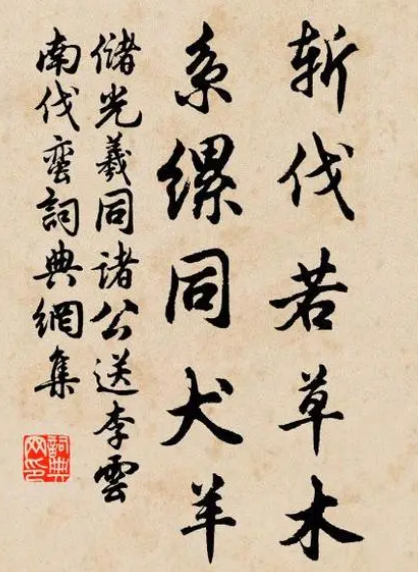 斩伐若草木
系缧同犬羊
储光羲同诸公送李云
南伐蛮词典网集
词典网印